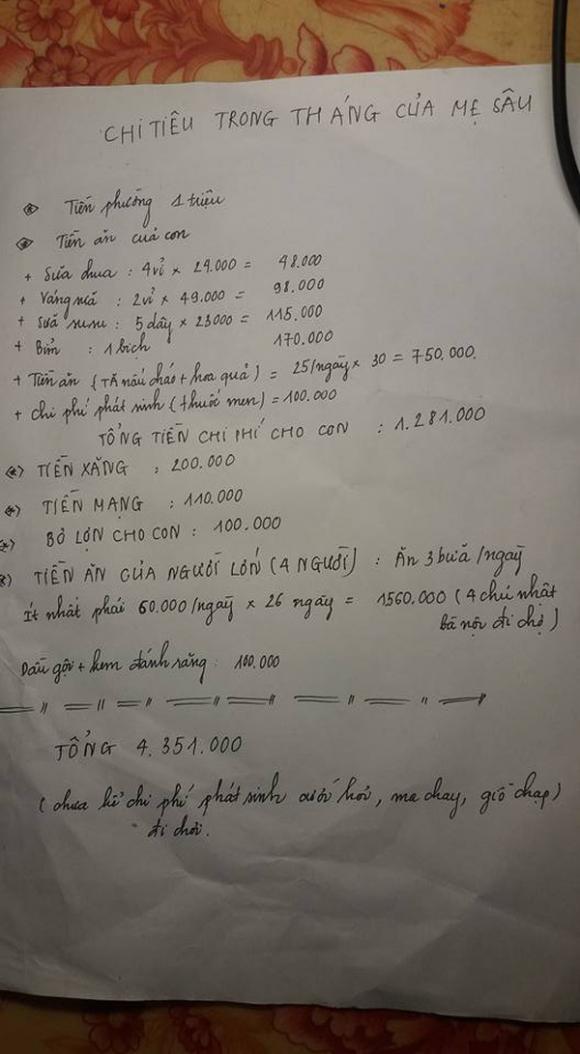 CHI TIÊU TRONG THÁNG CỦA MẸ SÂU
(*) Tiền phường 1 triệu
(*) Tiền ăn của con
+ Sữa chua : 4 vỉ × 24.000 = 48.000
+ Váng sữa : 2 vỉ × 49.000 = 98.000
+ Sữa susu : 5 dây × 23000 = 115.000
+ Bỉm : 1 bịch 170.000
+ Tiền ăn (TĂ nấu cháo + hoa quả) = 25/ngày × 30 = 750.000.
+ chi phí phát sinh (thuốc men) = 100.000
TỔNG TIỀN CHI PHÍ CHO CON : 1.281.000
(*) TIỀN XĂNG : 200.000
(*) TIỀN MẠNG : 110.000
(*) BỎ LỢN CHO CON : 100.000
(*) TIỀN ĂN CỦA NGƯỜI LỚN (4 NGƯỜI) : Ăn 3 bữa /ngày
Ít nhất phải 60.000/ngày × 26 ngày = 1560.000 (4 chủ nhật
bà nội đi chợ)
Dầu gội + kem đánh răng : 100.000
TỔNG 4.351.000
(chưa kể chi phí phát sinh cưới hỏi, ma chay, giỗ chạp)
đi chơi.